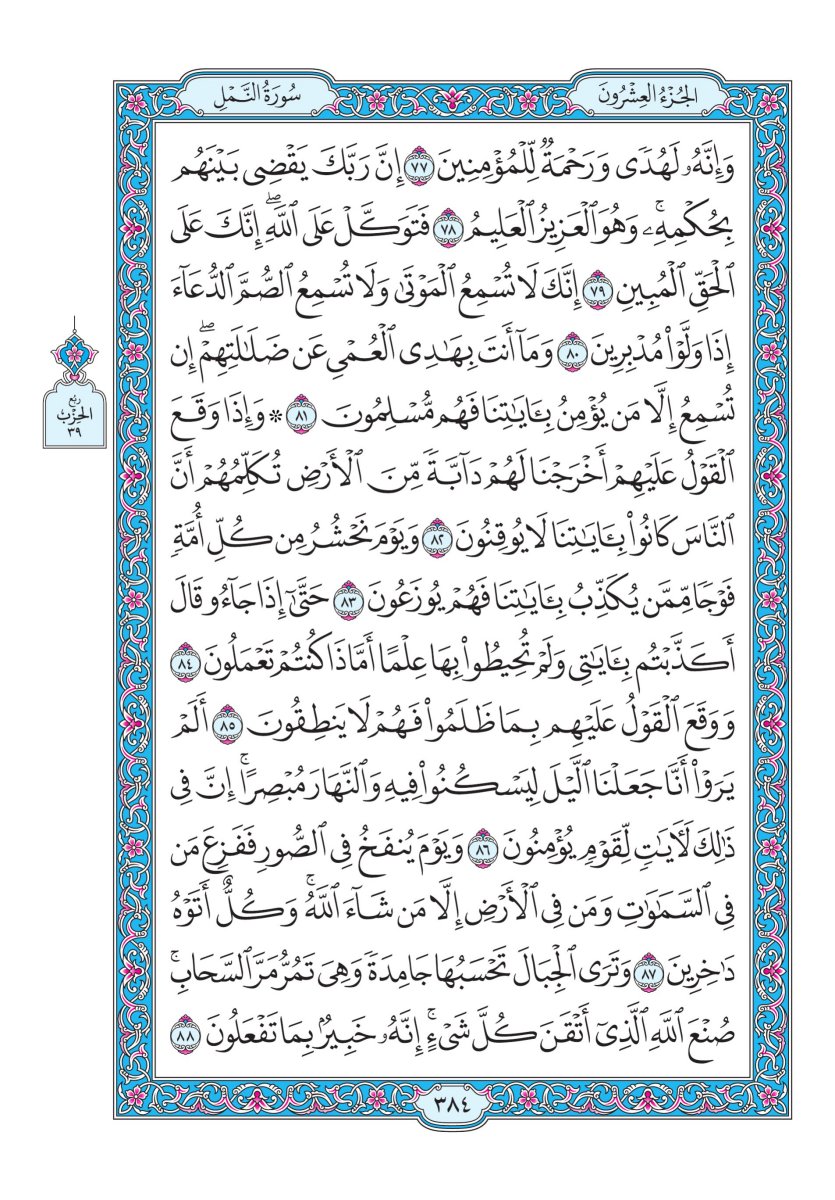 الجُزْءُ العِشْرُونَ
سُورَةُ النَّمْلِ
وَإِنَّهُۥ لَهُدٗى وَرَحۡمَةٞ لِّلۡمُؤۡمِنِينَ ٧٧ إِنَّ رَبَّكَ يَقۡضِي بَيۡنَهُم
بِحُكۡمِهِۦۚ وَهُوَ ٱلۡعَزِيزُ ٱلۡعَلِيمُ ٧٨ فَتَوَكَّلۡ عَلَى ٱللَّهِۖ إِنَّكَ عَلَى
ٱلۡحَقِّ ٱلۡمُبِينِ ٧٩ إِنَّكَ لَا تُسۡمِعُ ٱلۡمَوۡتَىٰ وَلَا تُسۡمِعُ ٱلصُّمَّ ٱلدُّعَآءَ
إِذَا وَلَّوۡاْ مُدۡبِرِينَ ٨٠ وَمَآ أَنتَ بِهَٰدِي ٱلۡعُمۡيِ عَن ضَلَٰلَتِهِمۡۖ إِن
تُسۡمِعُ إِلَّا مَن يُؤۡمِنُ بِـَٔايَٰتِنَا فَهُم مُّسۡلِمُونَ ٨١ ۞ وَإِذَا وَقَعَ
ٱلۡقَوۡلُ عَلَيۡهِمۡ أَخۡرَجۡنَا لَهُمۡ دَآبَّةٗ مِّنَ ٱلۡأَرۡضِ تُكَلِّمُهُمۡ أَنَّ
ٱلنَّاسَ كَانُواْ بِـَٔايَٰتِنَا لَا يُوقِنُونَ ٨٢ وَيَوۡمَ نَحۡشُرُ مِن كُلِّ أُمَّةٖ
فَوۡجٗا مِّمَّن يُكَذِّبُ بِـَٔايَٰتِنَا فَهُمۡ يُوزَعُونَ ٨٣ حَتَّىٰٓ إِذَا جَآءُو قَالَ
أَكَذَّبۡتُم بِـَٔايَٰتِي وَلَمۡ تُحِيطُواْ بِهَا عِلۡمًا أَمَّاذَا كُنتُمۡ تَعۡمَلُونَ ٨٤
وَوَقَعَ ٱلۡقَوۡلُ عَلَيۡهِم بِمَا ظَلَمُواْ فَهُمۡ لَا يَنطِقُونَ ٨٥ أَلَمۡ
يَرَوۡاْ أَنَّا جَعَلۡنَا ٱلَّيۡلَ لِيَسۡكُنُواْ فِيهِ وَٱلنَّهَارَ مُبۡصِرًاۚ إِنَّ فِي
ذَٰلِكَ لَأٓيَٰتٖ لِّقَوۡمٖ يُؤۡمِنُونَ ٨٦ وَيَوۡمَ يُنفَخُ فِي ٱلصُّورِ فَفَزِعَ مَن
فِي ٱلسَّمَٰوَٰتِ وَمَن فِي ٱلۡأَرۡضِ إِلَّا مَن شَآءَ ٱللَّهُۚ وَكُلٌّ أَتَوۡهُ
دَٰخِرِينَ ٨٧ وَتَرَى ٱلۡجِبَالَ تَحۡسَبُهَا جَامِدَةٗ وَهِيَ تَمُرُّ مَرَّ ٱلسَّحَابِۚ
صُنۡعَ ٱللَّهِ ٱلَّذِيٓ أَتۡقَنَ كُلَّ شَيۡءٍۚ إِنَّهُۥ خَبِيرُۢ بِمَا تَفۡعَلُونَ ٨٨
ربع
الحِزْب
٣٩
٣٨٤